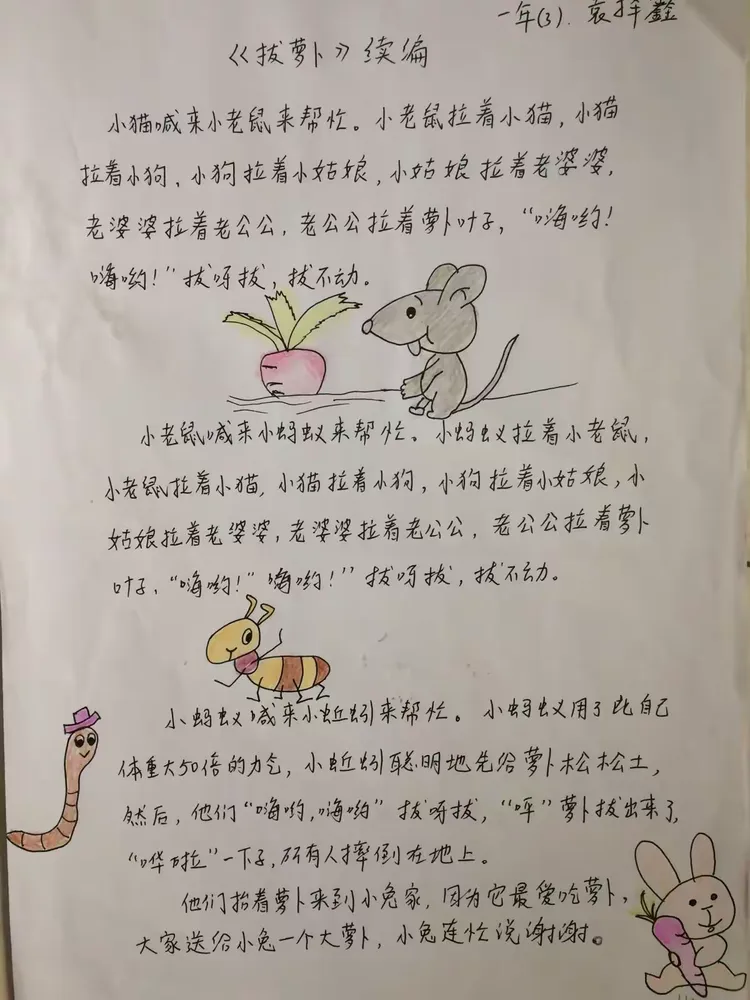 一年(3).
《拔萝卜》续编
小猫喊来小老鼠来帮忙。小老鼠拉着小猫，小猫
拉着小狗、小狗拉着小姑娘，小姑娘拉着老婆婆，
老婆婆拉着老公公，老公公拉着萝卜叶子，“嗨哟！
嗨哟！”拔呀拔，拔不动。
小老鼠喊来小蚂蚁来帮忙。小蚂蚁拉着小老鼠，
小老鼠拉着小猫，小猫拉着小狗，小狗拉着小姑娘，小
姑娘拉着老婆婆，老婆婆拉着老公公，老公公拉着萝卜
叶子，“嗨哟！”嗨哟！”拔呀拔，拔不动。
小蚂蚁喊来小蚯蚓来帮忙。小蚂蚁用了比自己
体重大50倍的力气，小蚯蚓聪明地先给萝卜松松土，
然后，他们“嗨哟，嗨哟”拔呀拔，“呯”萝卜拔出来了，
“哗啦”一下子，所有人摔倒在地上。
他们抬着萝卜来到小兔家，因为它最爱吃萝卜，
大家送给小兔一个大萝卜，小兔连忙说谢谢。